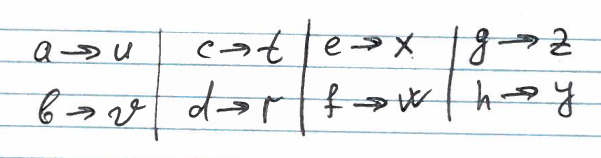 a → u | c → t | e → x | g → z
b → v | d → r | f → w | h → y